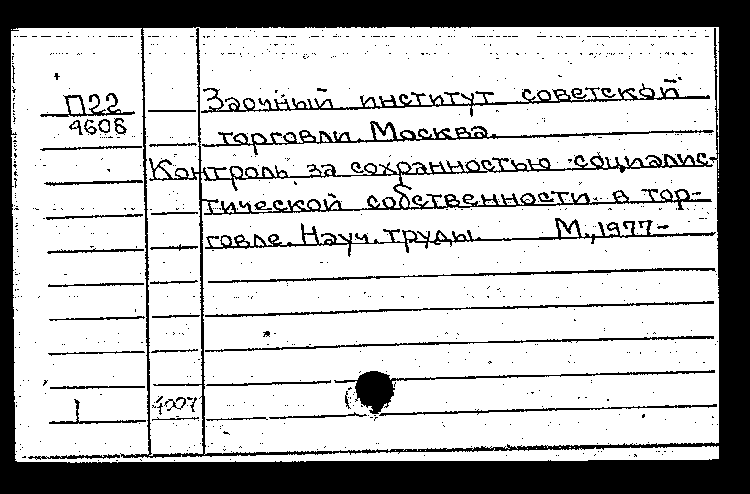 П22 Заочный институт советской
4608 торговли. Москва.
Контроль за сохранностью социалис-
тической собственности в тор-
говле. Науч. труды. М., 1977-
1 4007